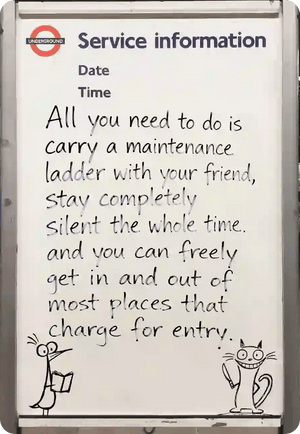 UNDERGROUND
Service information
Date
Time
All you need to do is
carry a maintenance
ladder with your friend,
stay completely
silent the whole time.
and you can freely
get in and out of
most places that
charge for entry.